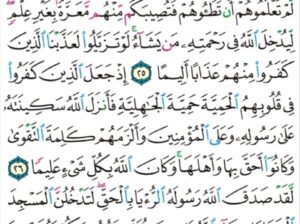 لَّمْ تَعْلَمُوهُمْ أَن تَطَـُٔوهُمْ فَتُصِيبَكُم مِّنْهُم مَّعَرَّةٌۢ بِغَيْرِ عِلْمٍ ۖ
لِّيُدْخِلَ ٱللَّهُ فِى رَحْمَتِهِۦ مَن يَشَآءُ ۚ لَوْ تَزَيَّلُوا۟ لَعَذَّبْنَا ٱلَّذِينَ
كَفَرُوا۟ مِنْهُمْ عَذَابًا أَلِيمًا ٢٥ إِذْ جَعَلَ ٱلَّذِينَ كَفَرُوا۟
فِى قُلُوبِهِمُ ٱلْحَمِيَّةَ حَمِيَّةَ ٱلْجَـٰهِلِيَّةِ فَأَنزَلَ ٱللَّهُ سَكِينَتَهُۥ
عَلَىٰ رَسُولِهِۦ وَعَلَى ٱلْمُؤْمِنِينَ وَأَلْزَمَهُمْ كَلِمَةَ ٱلتَّقْوَىٰ
وَكَانُوٓا۟ أَحَقَّ بِهَا وَأَهْلَهَا ۚ وَكَانَ ٱللَّهُ بِكُلِّ شَىْءٍ عَلِيمًا ٢٦
لَّقَدْ صَدَقَ ٱللَّهُ رَسُولَهُ ٱلرُّءْيَا بِٱلْحَقِّ ۖ لَتَدْخُلُنَّ ٱلْمَسْجِدَ